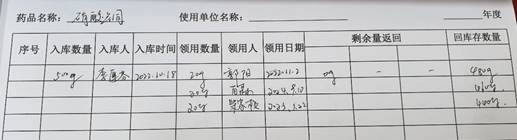 药品名称: 硝酸 使用单位名称: 年度
序号 入库数量 入库人 入库时间 领用数量 领用人 领用日期 剩余量返回 回库存数量
500g 李 2022.10.18 20g 郭 2022.11.2 0g - - 480g
20g 460g
20g 2023.3.22 440g